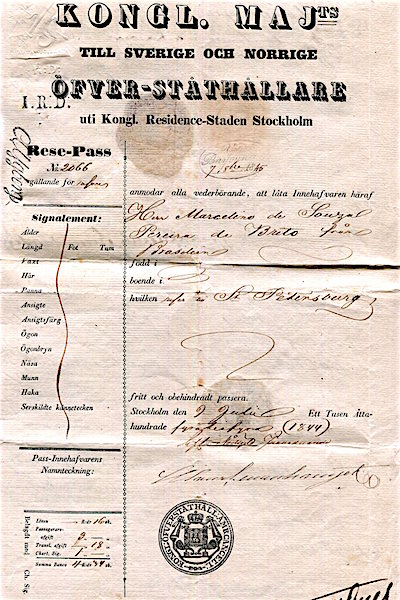 KONGL. MAJTS
TILL SVERIGE OCH NORRIGE
ÖFVER-STÅTHÅLLARE
I.R.D.
uti Kongl. Residence-Staden Stockholm
Rese-Pass
№ 2066
gällande för
anmodar alla vederbörande, att låta Innehafvaren häraf
Signalement:
Herr Marcelino de Souza
Pereira de Brito från
Brasilien
Ålder
Längd Fot Tum
Växt
född i
Hår
boende i
Panna
hvilken St Petersburg
Ansigte
Ansigtsfärg
Ögon
Ögonbryn
Näsa
Munn
Haka
fritt och obehindradt passera.
Serskildte kännetecken
Stockholm den 9 Julii Ett Tusen Åtta-
hundrade fyratiofyra (1844)
Pass-Innehafvarens
Namnteckning:
KONGL. ÖFVERSTÅTHÅLL. CANCELL.
Lösen
Passagerare-
afgift 2
Transl. afgift 18
Chart. Sig. 1
Summa Banco 4
Ch. Sig.